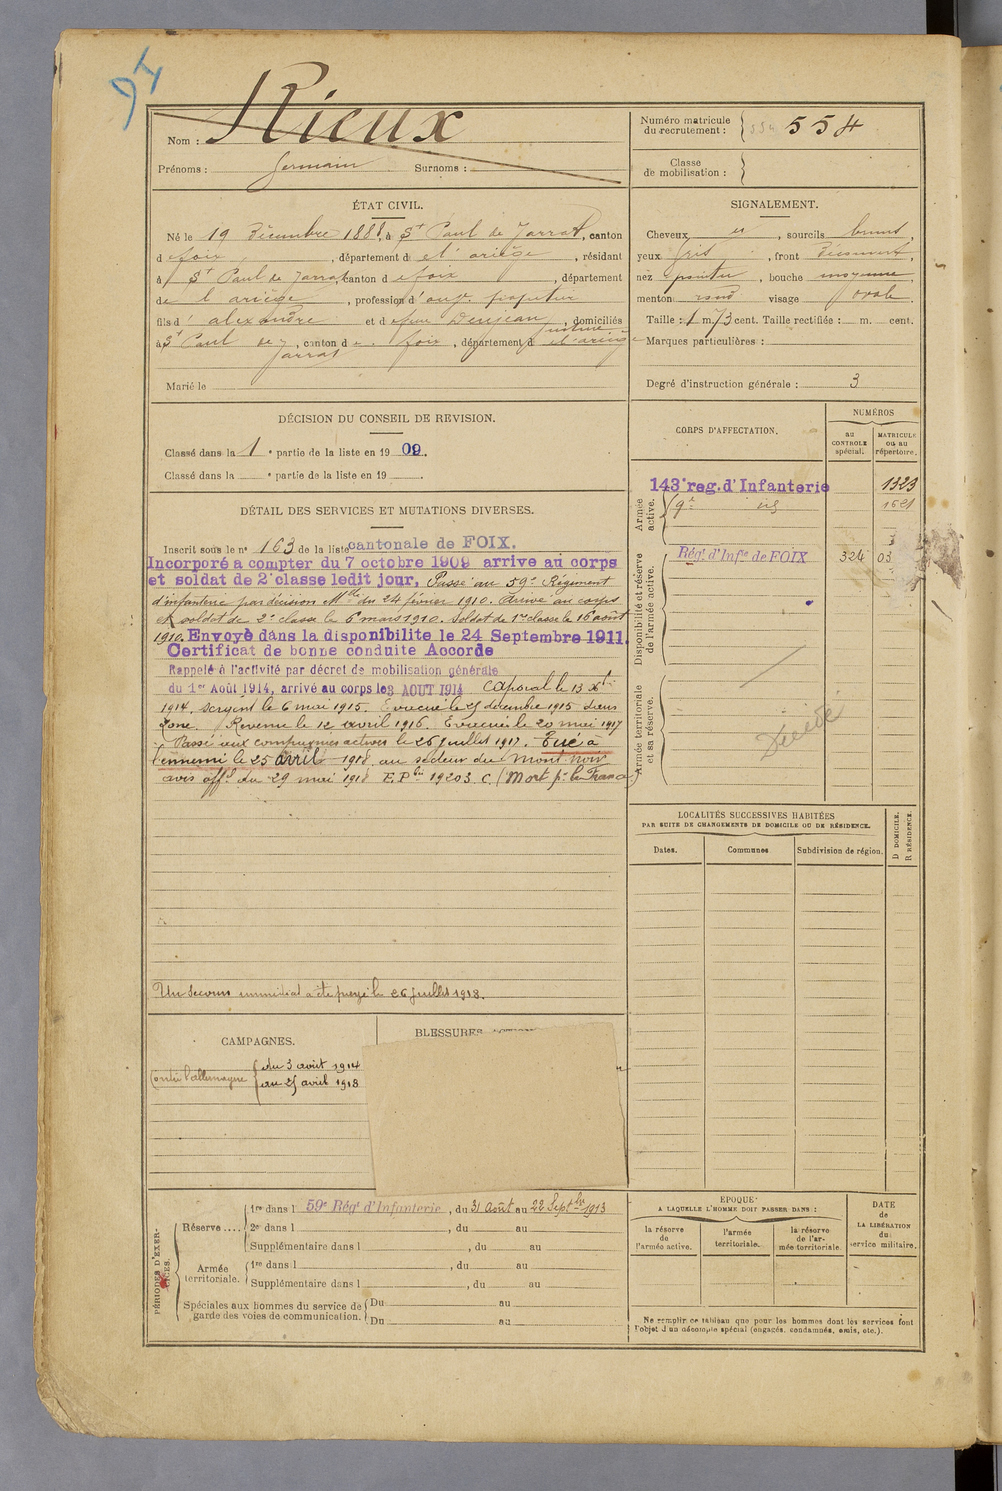 94
Nom : Rieux
Prénoms : Germain Surnoms :
Numéro matricule du recrutement : 554
Classe de mobilisation :
ÉTAT CIVIL.
Né le 19 Décembre 1888, à St Paul de Jarrat, canton
d e foix, département d e l'ariège, résidant
à St Paul de Jarrat, canton d e foix, département
de l'ariège, profession d
fils d' alexandre et d e domiciliés
à St Paul de Jarrat, canton d e foix, département d e l'ariège
Marié le
SIGNALEMENT.
Cheveux et, sourcils bruns,
yeux gris, front découvert,
nez pointu, bouche moyenne,
menton rond visage ovale
Taille : 1 m 73 cent. Taille rectifiée : m. cent.
Marques particulières :
Degré d'instruction générale : 3
DÉCISION DU CONSEIL DE REVISION.
Classé dans la 1e partie de la liste en 1909.
Classé dans la e partie de la liste en 19 .
DÉTAIL DES SERVICES ET MUTATIONS DIVERSES.
Inscrit sous le n° 163 de la liste cantonale de FOIX.
Incorporé a compter du 7 octobre 1909 arrive au corps
et soldat de 2e classe ledit jour, Passé au 59e Régiment
d'infanterie par décision Mlle du 24 février 1910. Arrivé au corps
et soldat de 2e classe le 6 mars 1910. Soldat de 1re classe le 16 août
1910. Envoyè dans la disponibilite le 24 Septembre 1911.
Certificat de bonne conduite Accorde
Rappelé à l'activité par décret de mobilisation générale
du 1er Août 1914, arrivé au corps le 3 AOUT 1914 Caporal le 13 Xbre
1914. Sergent le 6 mai 1915. Evacué le 25 décembre 1915
zone. Revenu le 12 avril 1916. Evacué le 20 mai 1917
Passé aux compagnies actives le 26 juillet 1917. Tué à
l'ennemi le 25 avril 1918 au secteur du Mont noir
avis offel du 29 mai 1918 E.P. 19203 C. (Mort pr la France)
Un secours immédiat a été payé le 26 juillet 1918.
CORPS D'AFFECTATION.
NUMÉROS
au CONTROLE spécial.
MATRICULE ou au répertoire.
Armée active.
143e reg. d'Infanterie 1323
59e id 1621
Disponibilité et réserve de l'armée active.
Régt d'Infie de FOIX 324 03
Armée territoriale et sa réserve.
Décédé
LOCALITÉS SUCCESSIVES HABITÉES
PAR SUITE DE CHANGEMENTS DE DOMICILE OU DE RÉSIDENCE.
Dates. Communes Subdivision de région.
D DOMICILE.
R RÉSIDENCE.
CAMPAGNES.
Contre l'allemagne
du 3 août 1914
au 25 avril 1918
BLESSURES
PÉRIODES D'EXERCICES.
Réserve ....
1re dans l 59e Régt d'Infanterie, du 31 Août au 22 Septbre 1913
2e dans l , du au
Supplémentaire dans l , du au
Armée territoriale.
1re dans l , du au
Supplémentaire dans l , du au
Spéciales aux hommes du service de garde des voies de communication.
Du au
Du au
EPOQUE
A LAQUELLE L'HOMME DOIT PASSER DANS :
la réserve de l'armée active.
l'armée territoriale.
la réserve de l'armée territoriale.
DATE de LA LIBÉRATION du service militaire.
Ne remplir ce tableau que pour les hommes dont les services font
l'objet d'un décompte spécial (engagés, condamnés, omis, etc.).